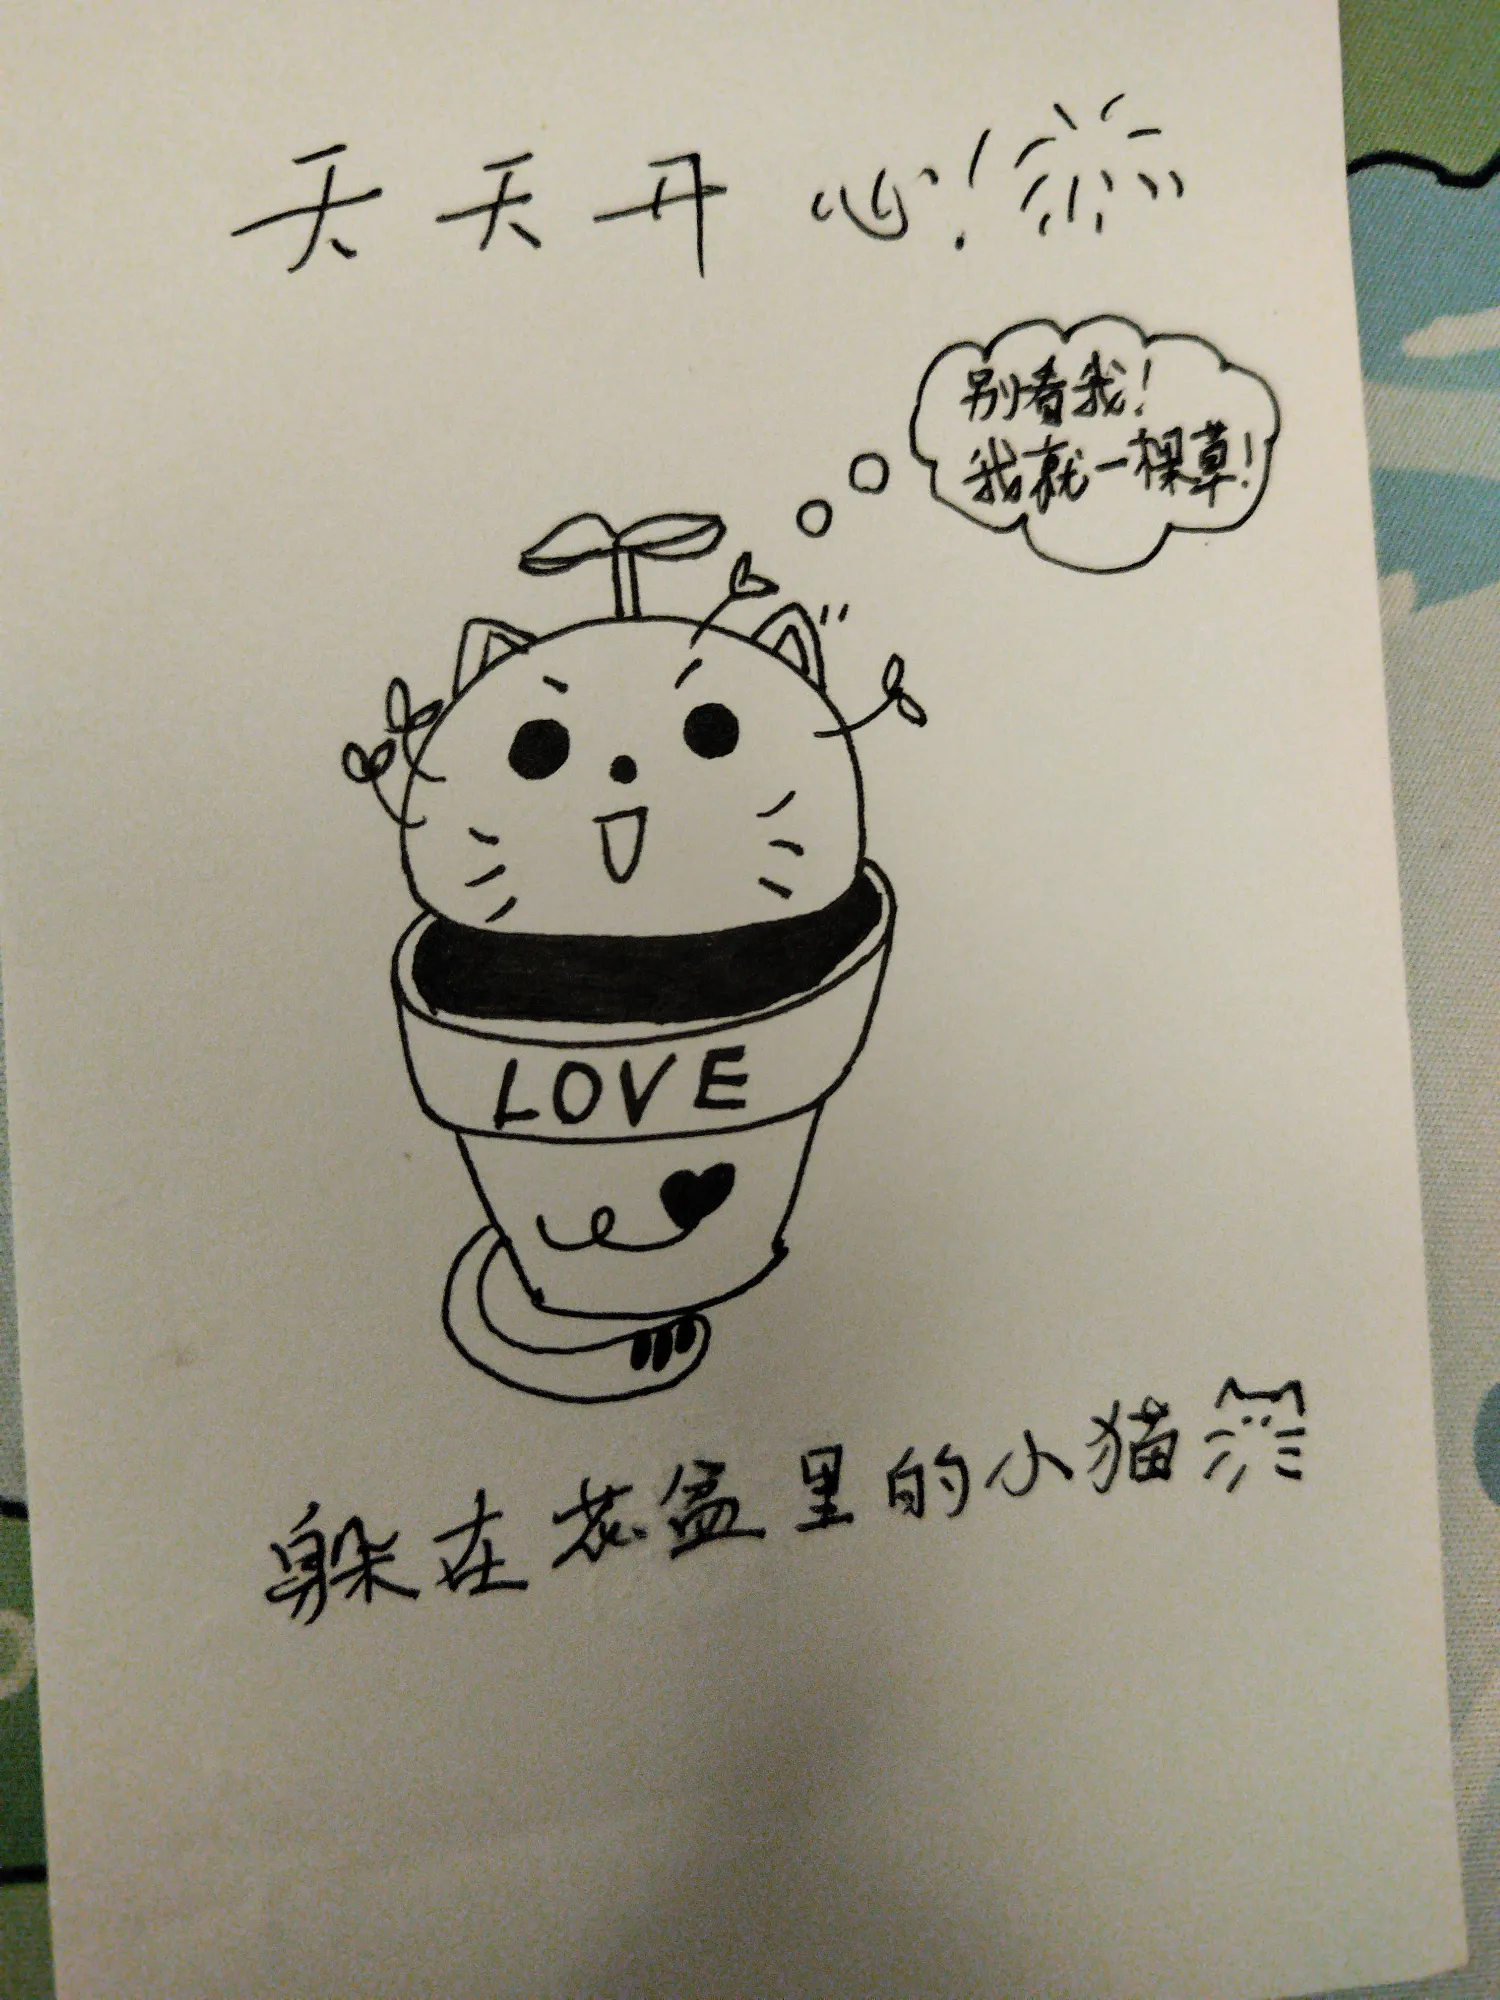 天天开心!
别看我!
我就一棵草!
LOVE
躲在花盆里的小猫